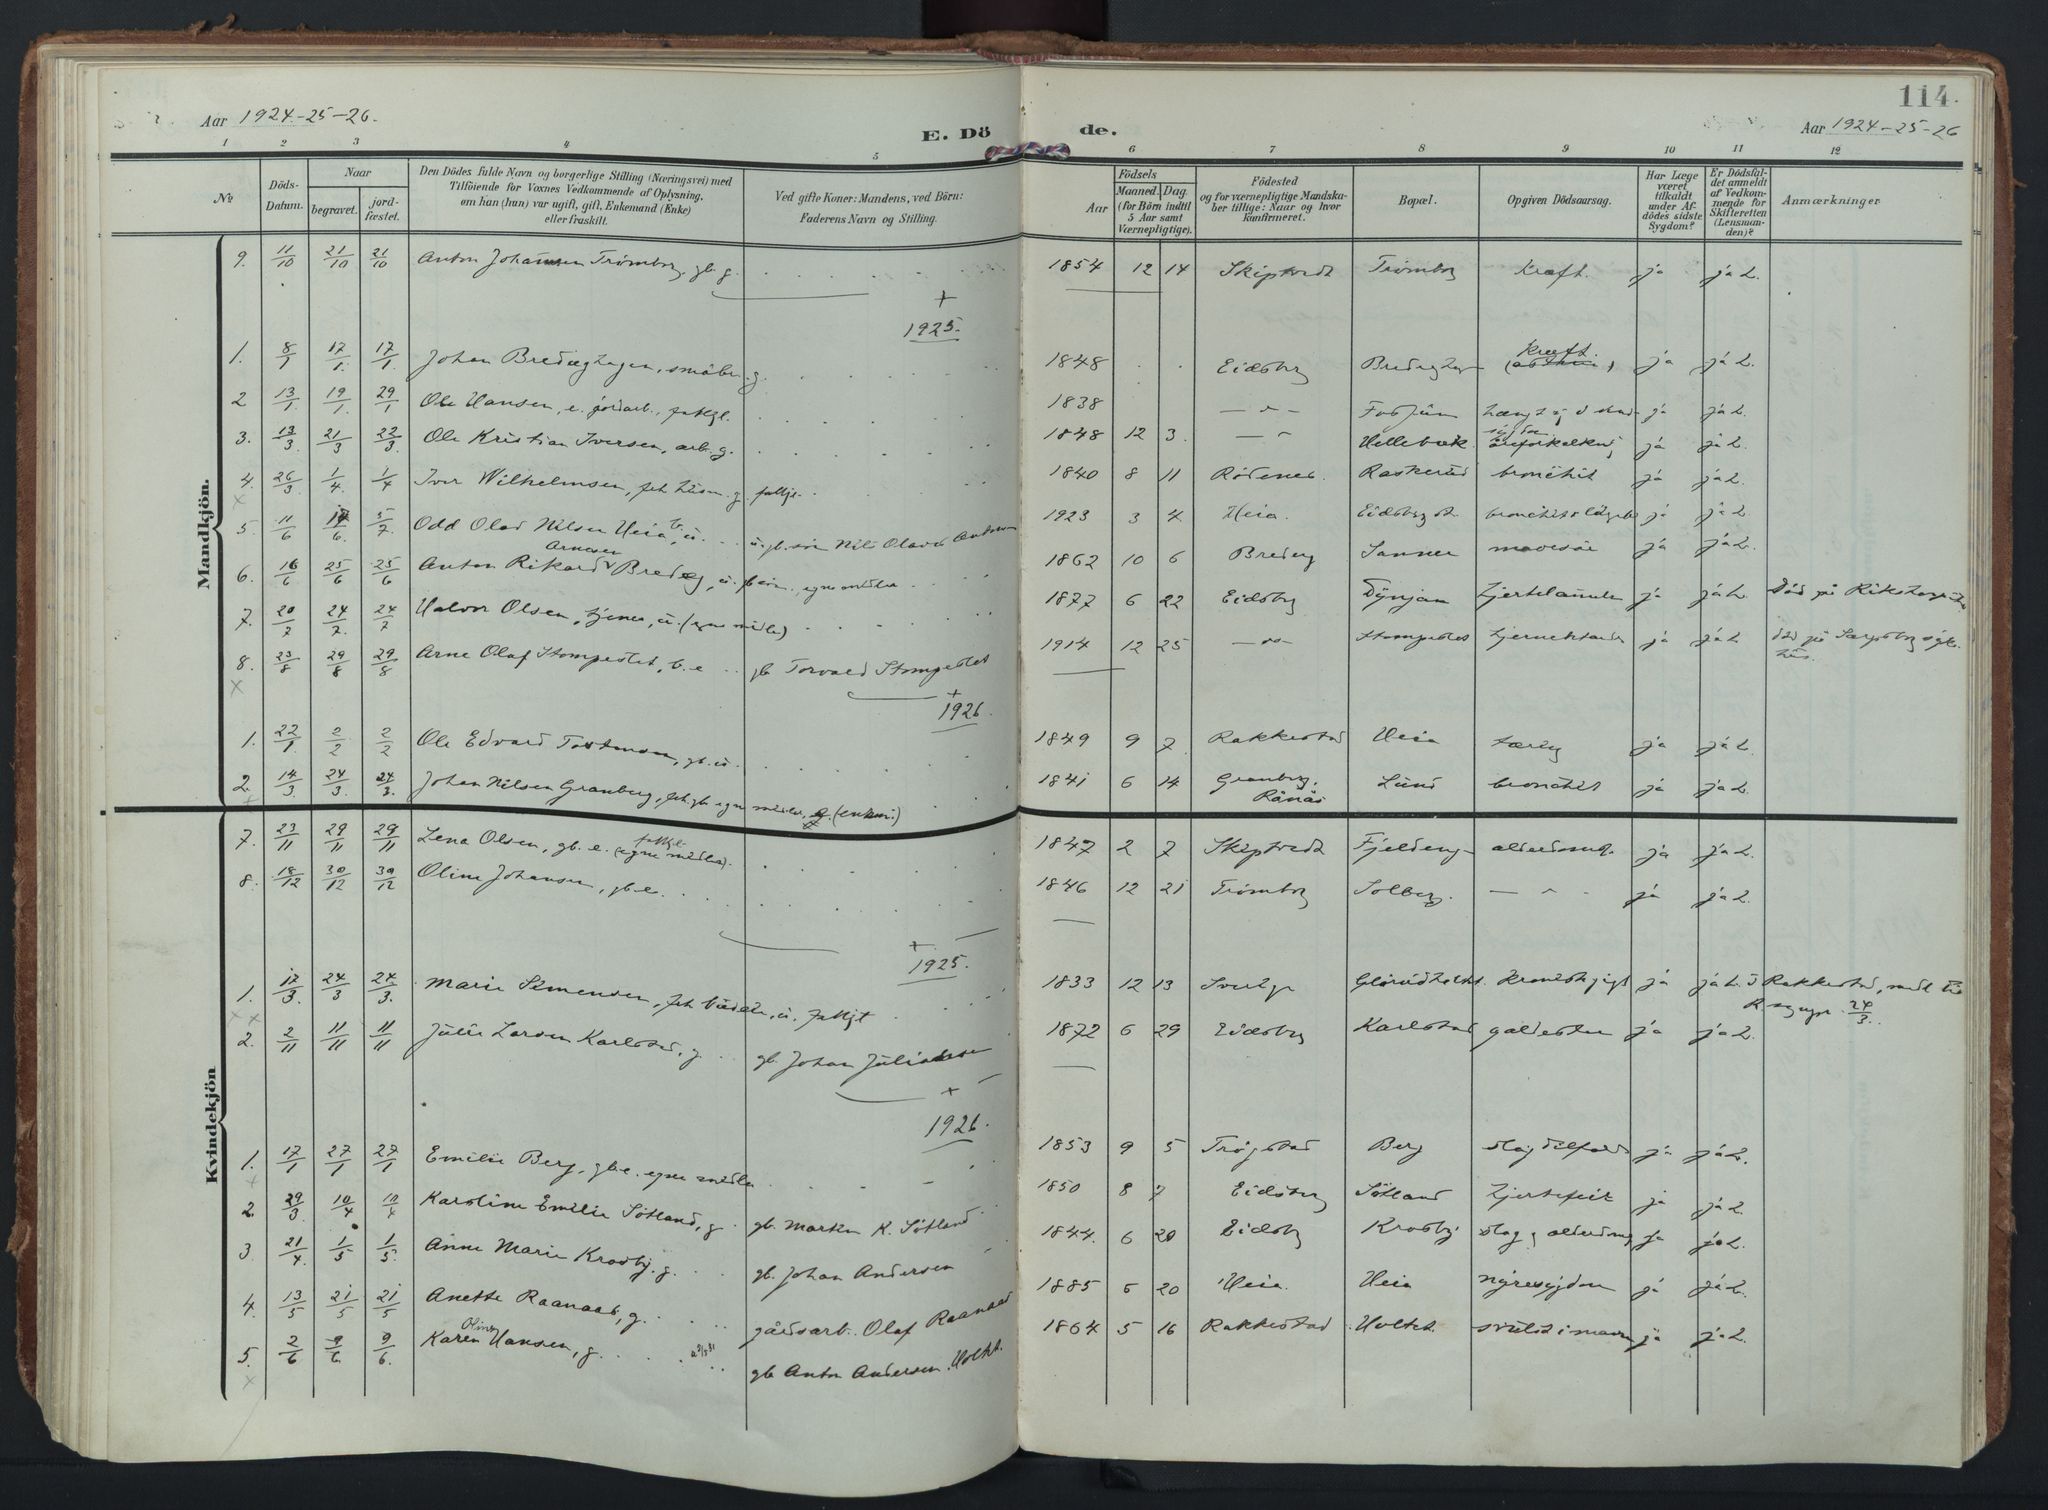 114.
Aar 1924-25-26.
E. Dö de.
Aar 1924-25-26
1 2 3 4 5 6 7 8 9 10 11 12
№
Döds-Datum.
Naar
begravet.
jord-fæstet.
Den Dödes fulde Navn og borgerlige Stilling (Næringsvei) med
Tilföiende for Voxnes Vedkommende af Oplysning,
om han (hun) var ugift, gift, Enkemand (Enke)
eller fraskilt.
Ved gifte Koner: Mandens, ved Börn:
Faderens Navn og Stilling.
Födsels
Aar
Maaned. Dag.
(for Börn indtil
5 Aar samt
Værnepligtige).
Födested
og for værnepligtige Mandska-
ber tillige: Naar og hvor
konfirmeret.
Bopæl.
Opgiven Dödsaarsag.
Har Læge
været
tilkaldt
under Af-
dödes sidste
Sygdom?
Er Dödsfal-
det anmeldt
af Vedkom-
mende for
Skifteretten
(Lensman-
den)?
Anmærkninger
Mandkjön.
9. 11/10 21/10 21/10 Anton Johannsen Trømborg, gb. g. 1854 12 14 Skiptvedt Trømborg Kræft. ja ja L.
+ 1925.
1. 8/1 17/1. 17/1 Johan Bredeghagen, småbr. g. 1848 Eidsberg Kræft. ja ja L.
2 13/1. 19/1. 29/1 Ole Hansen, e. jordarb., 1838 — " — ja ja L.
3. 13/3 21/3 22/3. Ole Kristian Iversen, arb. g. 1848 12 3. — " Hellebæk. åreforkalkn ja ja L.
4. 26/3 1/4. 1/4 Iver Wilhelmsen, g. 1840 8 11 Rødenes. Raskerud bronchit ja ja L.
5. 11/6 17/6. 5/7 Odd Olav Nilsen Heia, u. 1923 3 4. Heia. Eidsberg st. ja ja L.
6. 16/6 25/6 25/6 Anton Rikard Arnesen Bredeg, u. egne midler 1862 10 6 Bredeg Sanner mavesår ja ja L.
7. 20/7 24/7. 24/7 Halvor Olsen, tjener, u. (egne midler) 1877 6 22 Eidsberg ja ja L. Død på Rikshospitalet
8. 23/8 29/8 29/8 Arne Olaf Stompestet, b. e gb Torvald Stompestet 1914 12 25 — " — Stompestet ja ja L død på Sarpsborg syke-
hus.
+ 1926.
1. 22/1. 2/2 2/2 Ole Edvard, gb. u. 1849 9 7. Rakkestad Heia tæring ja ja L.
2. 14/3. 24/3. 24/3. Johan Nilsen Granberg, egne midler, (enkem:) 1841 6 14 Granberg, Rånås Lund bronchit ja ja L.
Kvindekjön
7. 23/11 29/11 29/11 Lena Olsen, gb. e. (egne midler). 1847 2 7 Skiptvedt Fjeldeng alderdomsl. ja ja L.
8. 18/12 30/12 30/12 Oline Johansen, gb. e. 1846 12 21 Trømborg Solberg. — " — ja ja L.
+ 1925.
1. 17/3. 24/3 24/3. Marie Simensen, u. 1833 12 13 Sverige ja ja L. Rakkestad, 24/3.
2. 2/11 11/11 11/11 Julie Larsen Karlstad, g. gb. Johan Juliussen 1872 6 29 Eidsberg Karlstad galdesten ja ja L.
+ 1926.
1. 17/1 27/1 27/1 Emilie Berg, gb. e. egne midler 1853 9 5 Trøgstad Berg slagtilfælde ja ja L.
2. 29/3 10/4 10/4 Karoline Emilie Søtland, g. gb. Martin K. Søtland 1850 8 7 Eidsberg Søtland hjertefeil ja ja L.
3. 21/4 1/5 1/5. Anne Marie Krosby. g. gb. Johan Andersen 1844. 6 20 Eidsberg Krosby. ja ja L.
4. 13/5 21/5 21/5 Anette Raanaas, g. gårdsarb. Olaf Raanaas 1885 6 20 Heia. Heia nyresygdom ja ja L.
5. 2/6 9/6. 9/6. Karen Oline Hansen, g. gb Anton Andersen Holtet. 1864 5 16 Rakkestad Holtet. svulst i maven ja ja L.